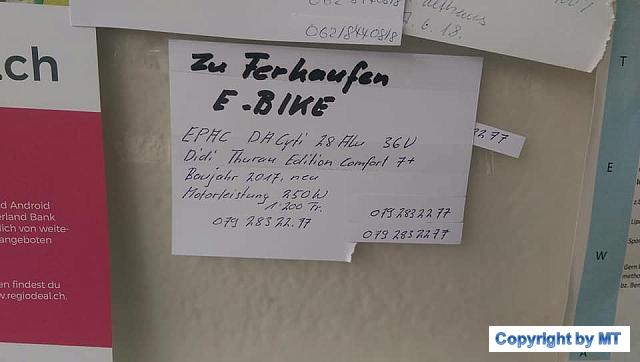 06218440818
.6.18.
.ch
Zu Ferhaufen
E-BIKE
EPAC DA Cyti 28 Alu 36V
Didi Thurau Edition Comfort 7+
Baujahr 2017, neu
Motorleistung 250W
1'200 Fr.
079 283 22.77
079 283 22 77
079 283 22 77
22 77
d Android
erland Bank
lich von weite-
angeboten
en findest du
w.regiodeal.ch.
T
E
W
A
Lip
Spor
Gern
metho
bz. Ben
Copyright by MT